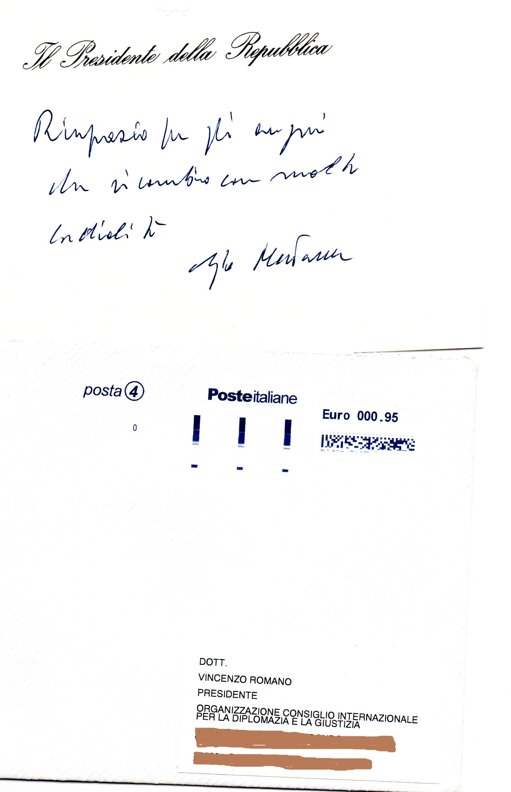 Il Presidente della Repubblica
Ringrazio per gli auguri
che ricambio con molta
cordialità
Sergio Mattarella
posta 4
Posteitaliane
Euro 000.95
0
DOTT.
VINCENZO ROMANO
PRESIDENTE
ORGANIZZAZIONE CONSIGLIO INTERNAZIONALE
PER LA DIPLOMAZIA E LA GIUSTIZIA